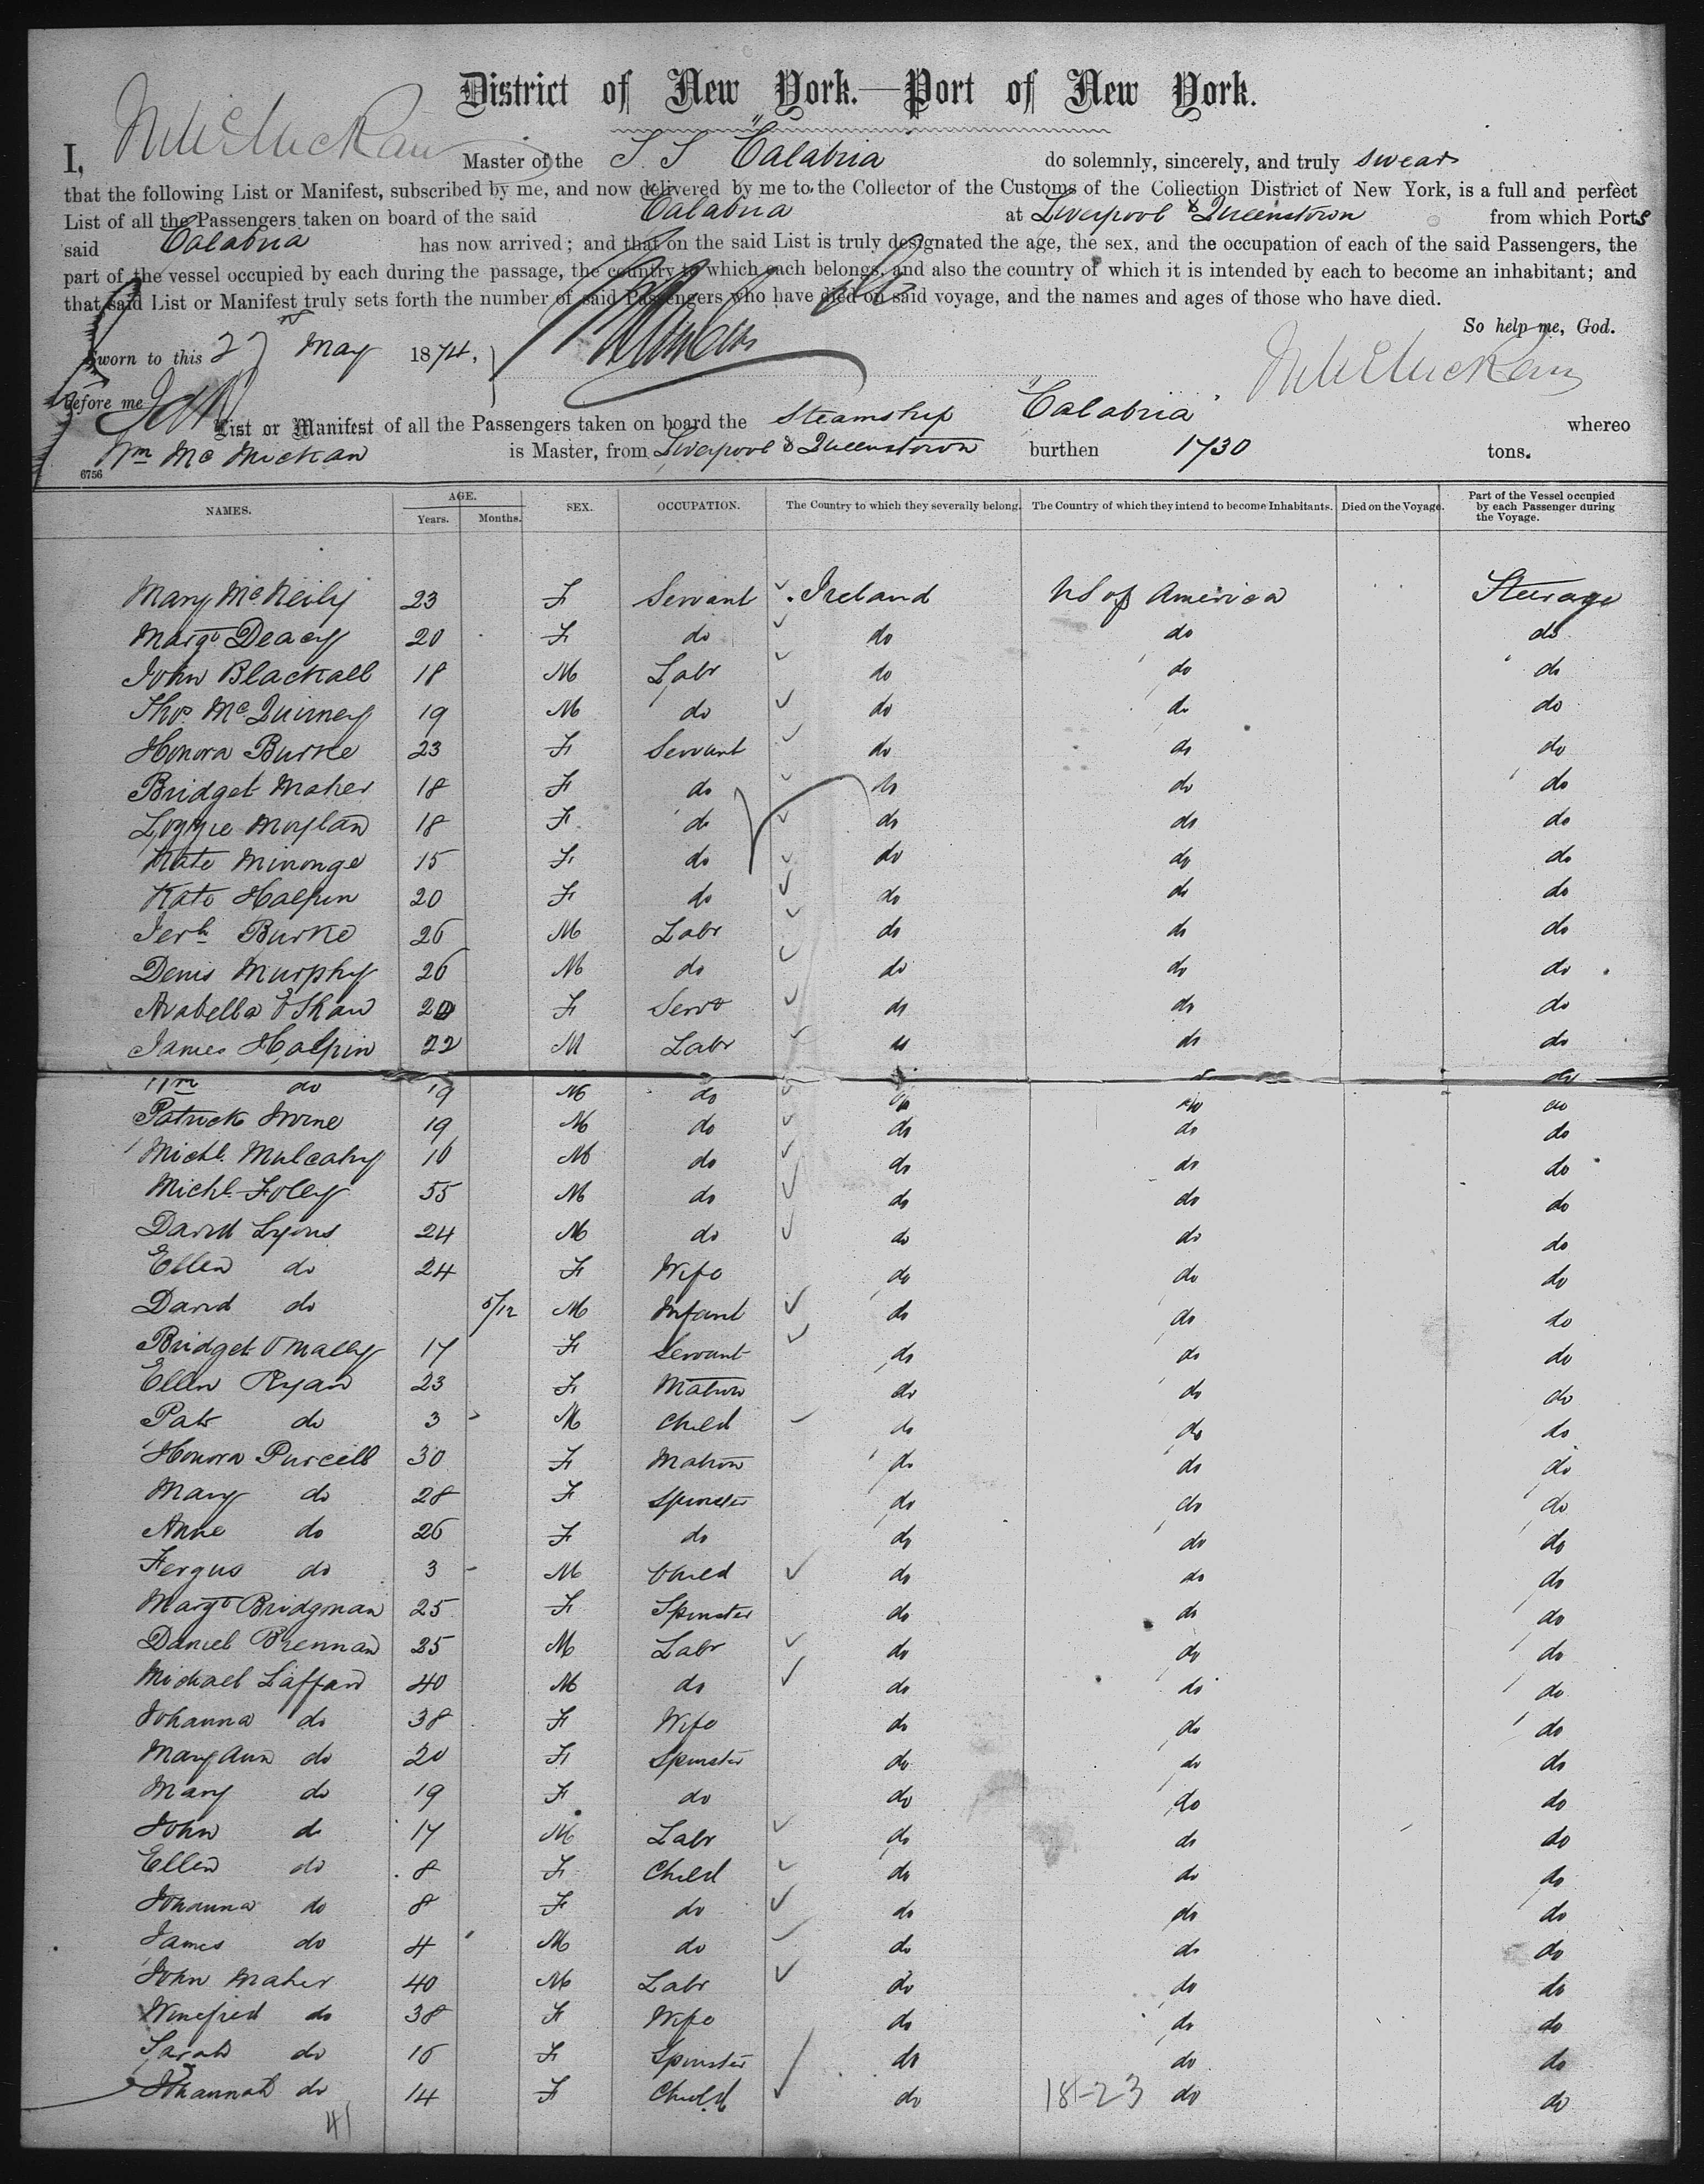 District of New York.—Port of New York.
I, Wm McMickan Master of the S S "Calabria" do solemnly, sincerely, and truly swear
that the following List or Manifest, subscribed by me, and now delivered by me to the Collector of the Customs of the Collection District of New York, is a full and perfect
List of all the Passengers taken on board of the said Calabria at Liverpool & Queenstown from which Ports
said Calabria has now arrived; and that on the said List is truly designated the age, the sex, and the occupation of each of the said Passengers, the
part of the vessel occupied by each during the passage, the country to which each belongs, and also the country of which it is intended by each to become an inhabitant; and
that said List or Manifest truly sets forth the number of said Passengers who have died on said voyage, and the names and ages of those who have died.
So help me, God.
Sworn to this 27 May 1874, Wm McMickan
Before me
List or Manifest of all the Passengers taken on board the Steamship "Calabria" whereo
Wm Mc Mickan is Master, from Liverpool & Queenstown burthen 1730 tons.
6756
NAMES. AGE. Years. Months. SEX. OCCUPATION. The Country to which they severally belong. The Country of which they intend to become Inhabitants. Died on the Voyage. Part of the Vessel occupied by each Passenger during the Voyage.
Mary McNeily 23 F Servant Ireland US of America Steerage
Margt Deacy 20 F do do do do
John Blackall 18 M Labr do do do
Thos McQuirney 19 M do do do do
Honora Burke 23 F Servant do do do
Bridget Maher 18 F do do do do
Lizzie Moylan 18 F do do do do
Kate 15 F do do do do
Kate Halpin 20 F do do do do
Jerh Burke 26 M Labr do do do
Denis Murphy 26 M do do do do
Arabella 20 F Servt do do do
James Halpin 22 M Labr do do do
Wm do 19 M do do do do
Patrick Irvine 19 M do do do do
Michl Mulcahy 16 M do do do do
Michl Foley 55 M do do do do
David Lyons 24 M do do do do
Ellen do 24 F Wife do do do
David do 5/12 M Infant do do do
Bridget OMally 17 F Servant do do do
Ellen Ryan 23 F Matron do do do
Pat do 3 M Child do do do
Honora Purcell 30 F Matron do do do
Mary do 28 F Spinster do do do
Anne do 26 F do do do do
Fergus do 3 M Child do do do
Margt Bridgman 25 F Spinster do do do
Daniel Brennan 25 M Labr do do do
Michael Laffan 40 M do do do do
Johanna do 38 F Wife do do do
Mary Ann do 20 F Spinster do do do
Mary do 19 F do do do do
John do 17 M Labr do do do
Ellen do 8 F Child do do do
Johanna do 8 F do do do do
James do 4 M do do do do
John Maher 40 M Labr do do do
Winefred do 38 F Wife do do do
Sarah do 16 F Spinster do do do
Johannah do 14 F Child do do do
41 18-23